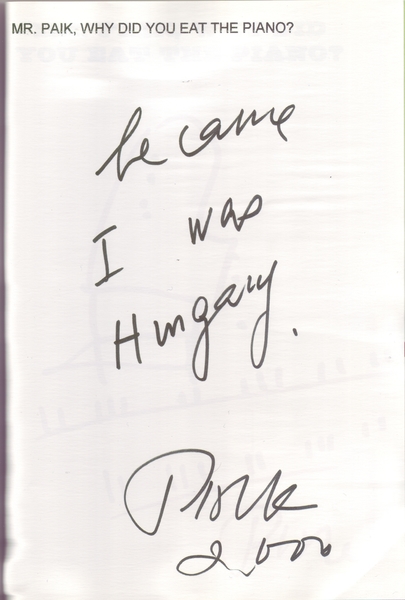 MR. PAIK, WHY DID YOU EAT THE PIANO?
because
I was
Hungary.
Paik
2000